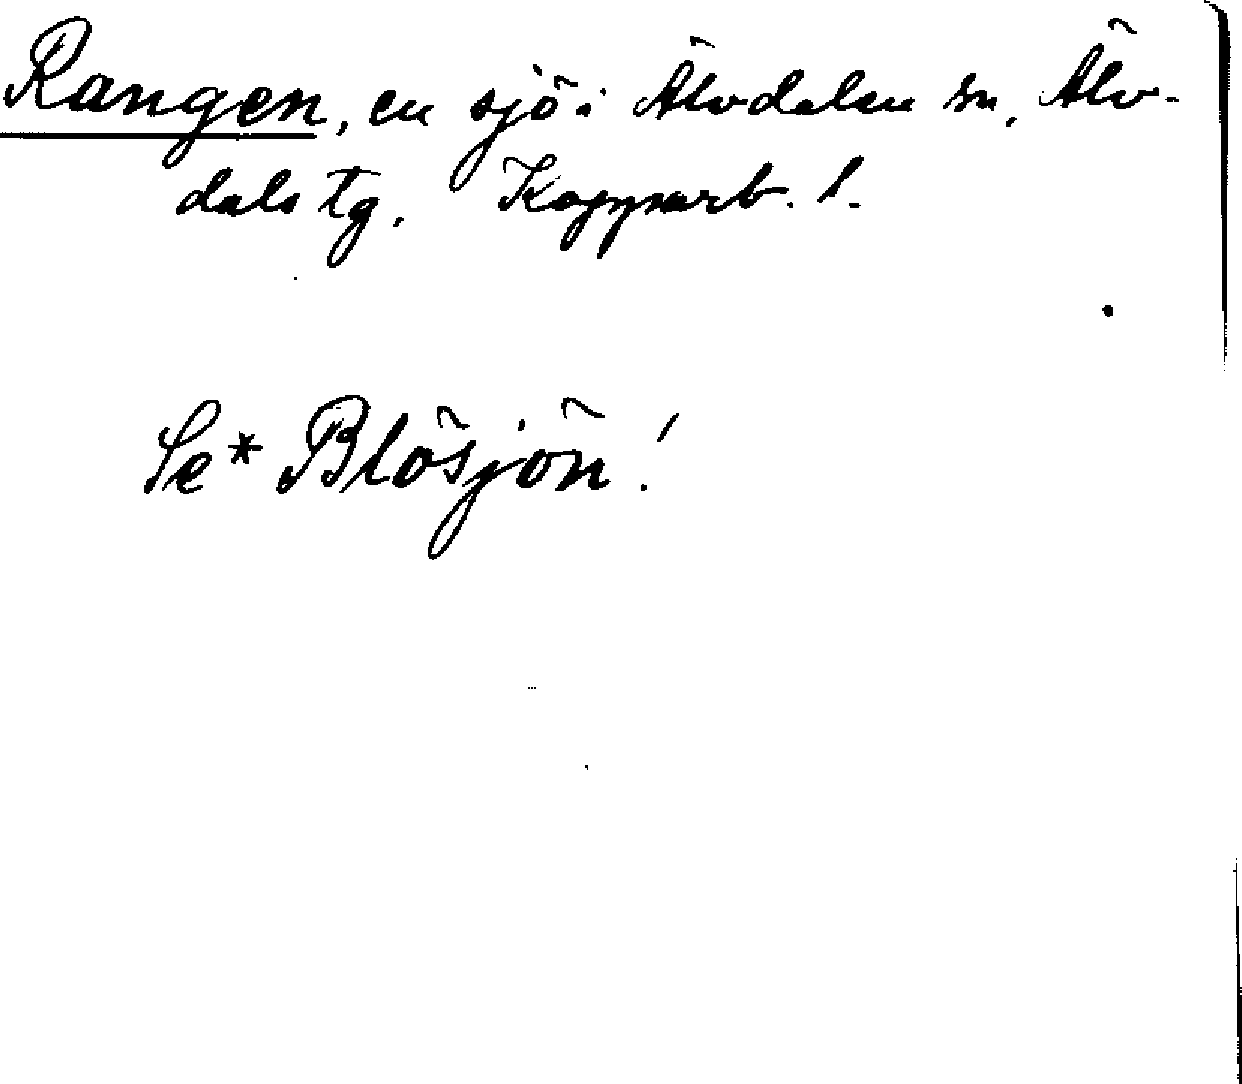 Rangen, en sjö i Älvdalen sn, Älv-
dals tg. Kopparb. l.
Se* Blösjön!